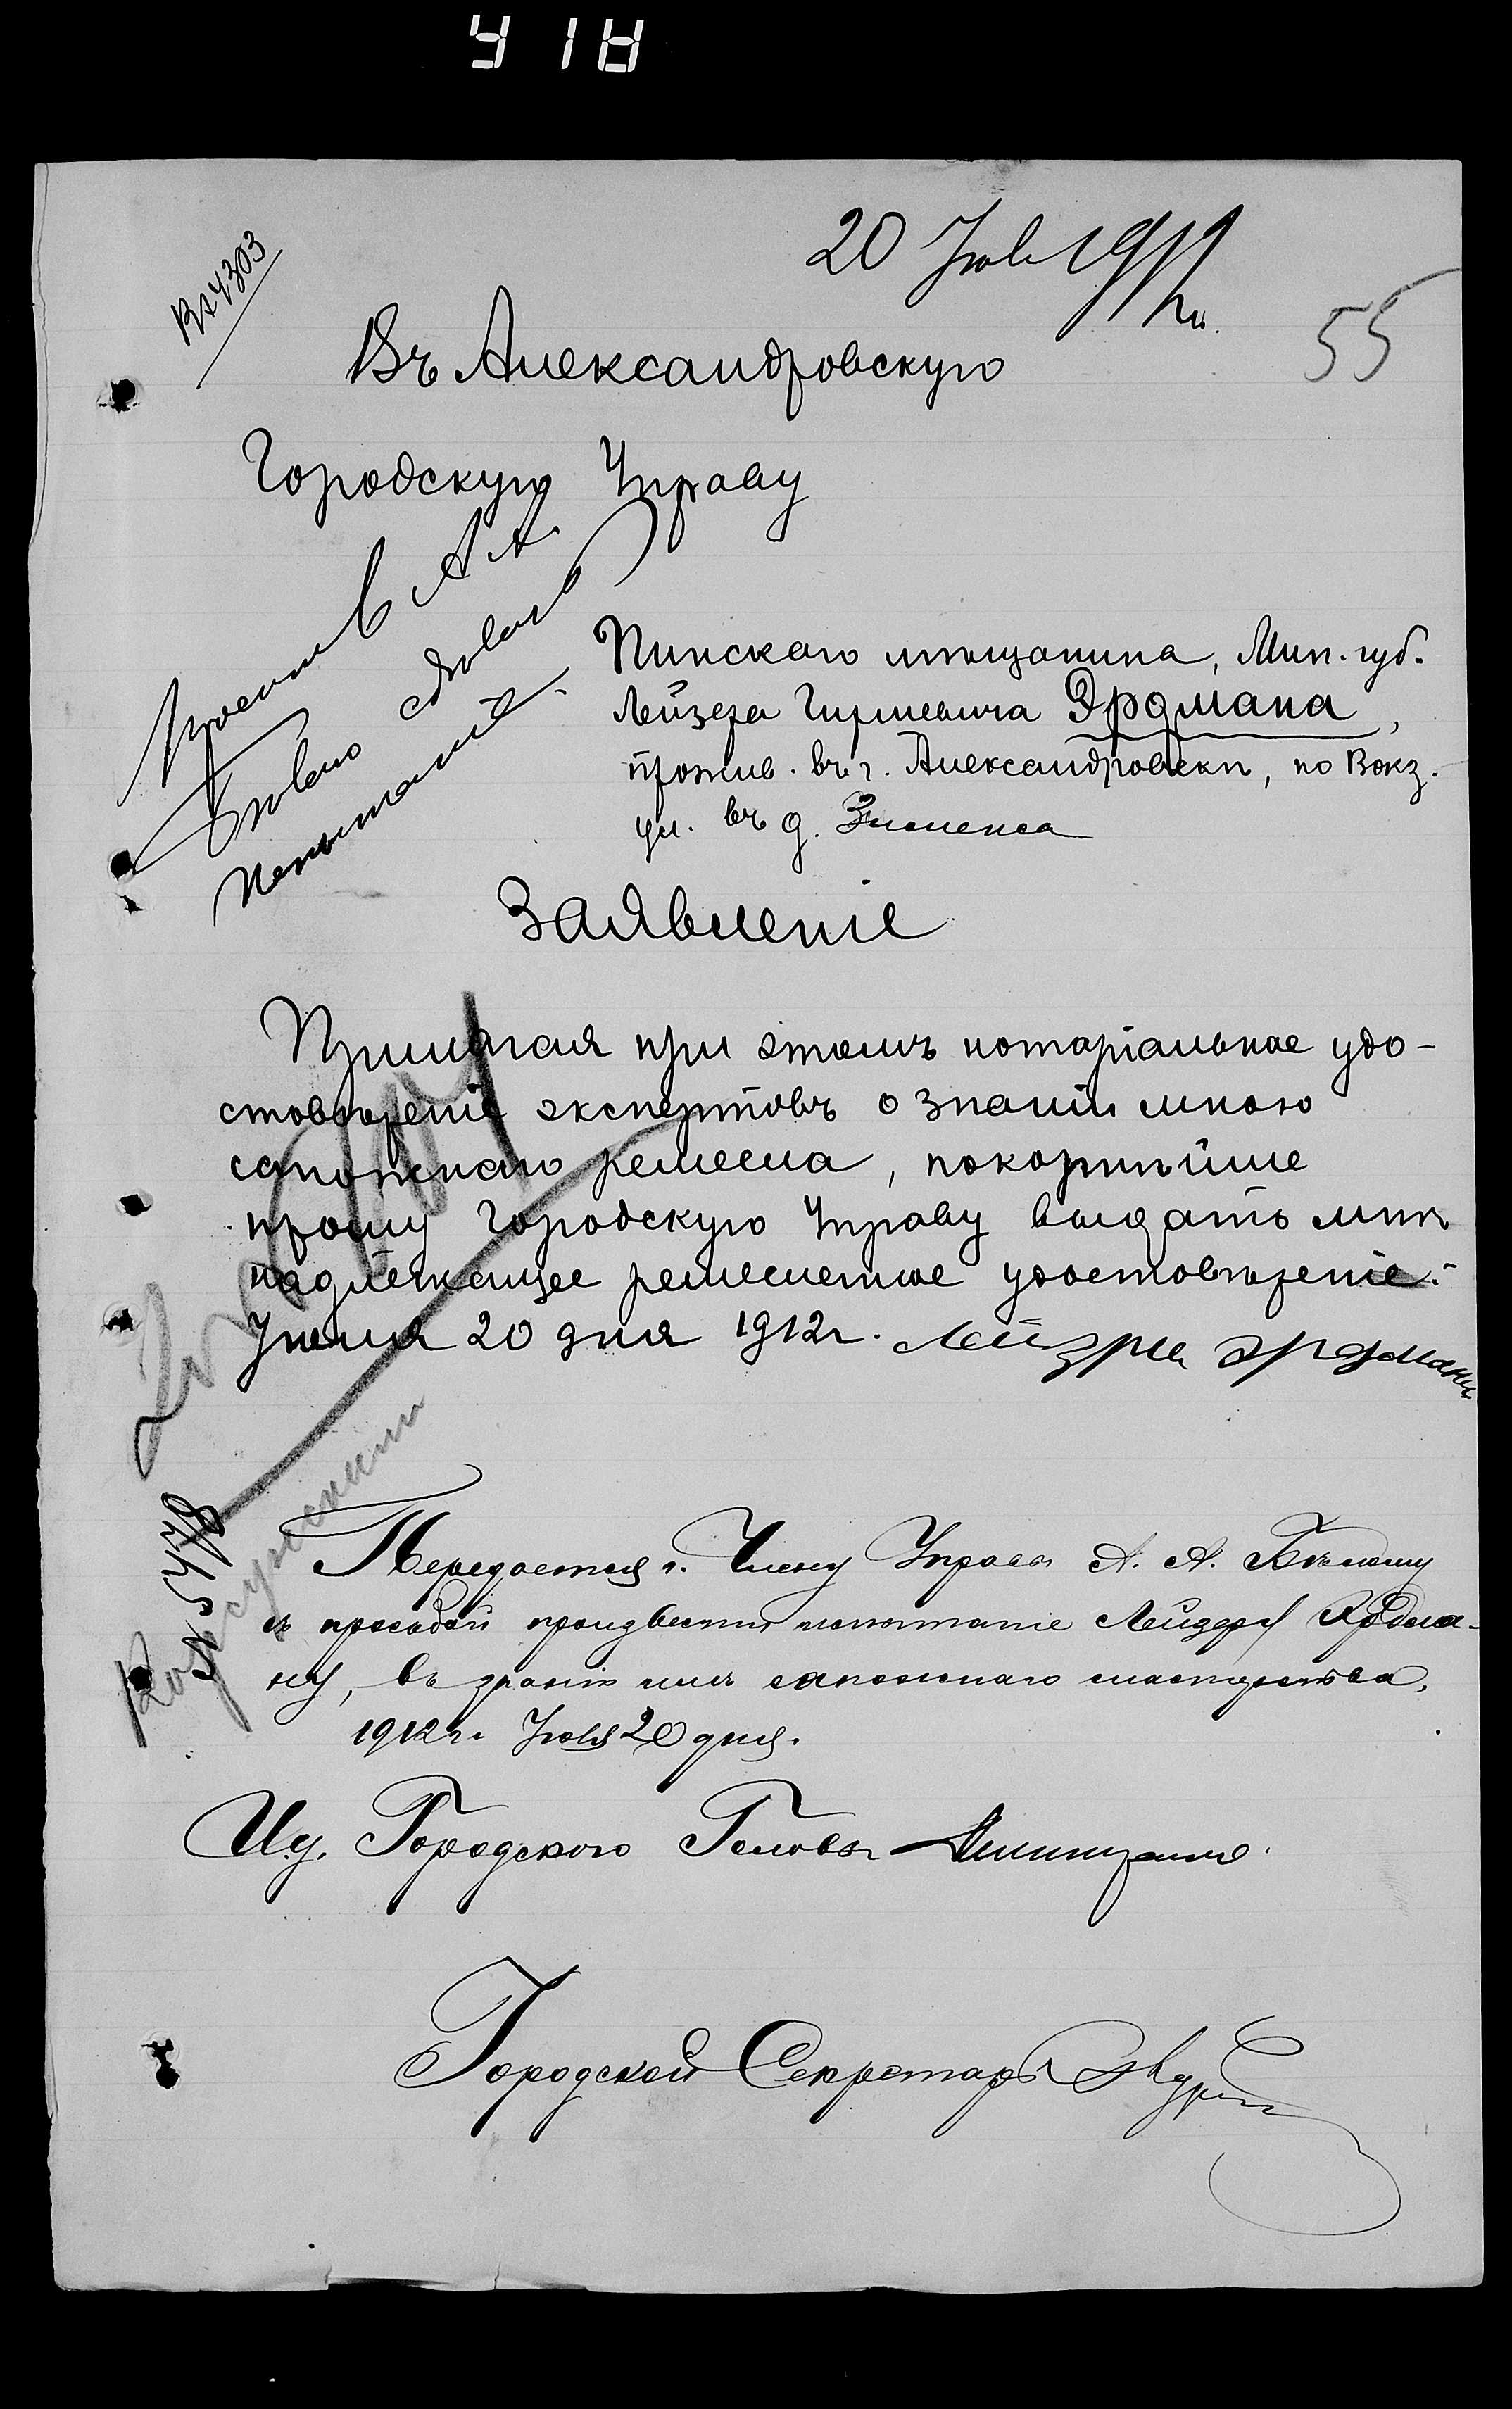 418
20 Іюля 1912 г.
Вх 4303
55
Въ Александровскую
Городскую Управу
Просить А. А.
Бѣлаго сдѣлать
испытаніе.
Пинскаго мѣщанина, Мин. губ.
Лейзера Гиршевича Эрдмана,
прожив. въ г. Александровскѣ, по Вокз.
ул. въ д. Зименса
Заявленіе
Прилагая при этомъ нотаріальное удо-
стовѣреніе экспертовъ о знаніи мною
сапожнаго ремесла, покорнѣйше
прошу Городскую Управу выдать мнѣ
надлежащее ремесленное удостовѣреніе.
Іюля 20 дня 1912 г. Лейзеръ Эрдманъ
№ 5478
Передается г. Члену Управы А. А. Бѣлому
съ просьбой произвести испытаніе Лейзеру Эрдма-
ну, въ знаніи имъ сапожнаго мастерства.
1912 г. Іюля 20 дня.
И.д. Городского Головы
Городской Секретарь